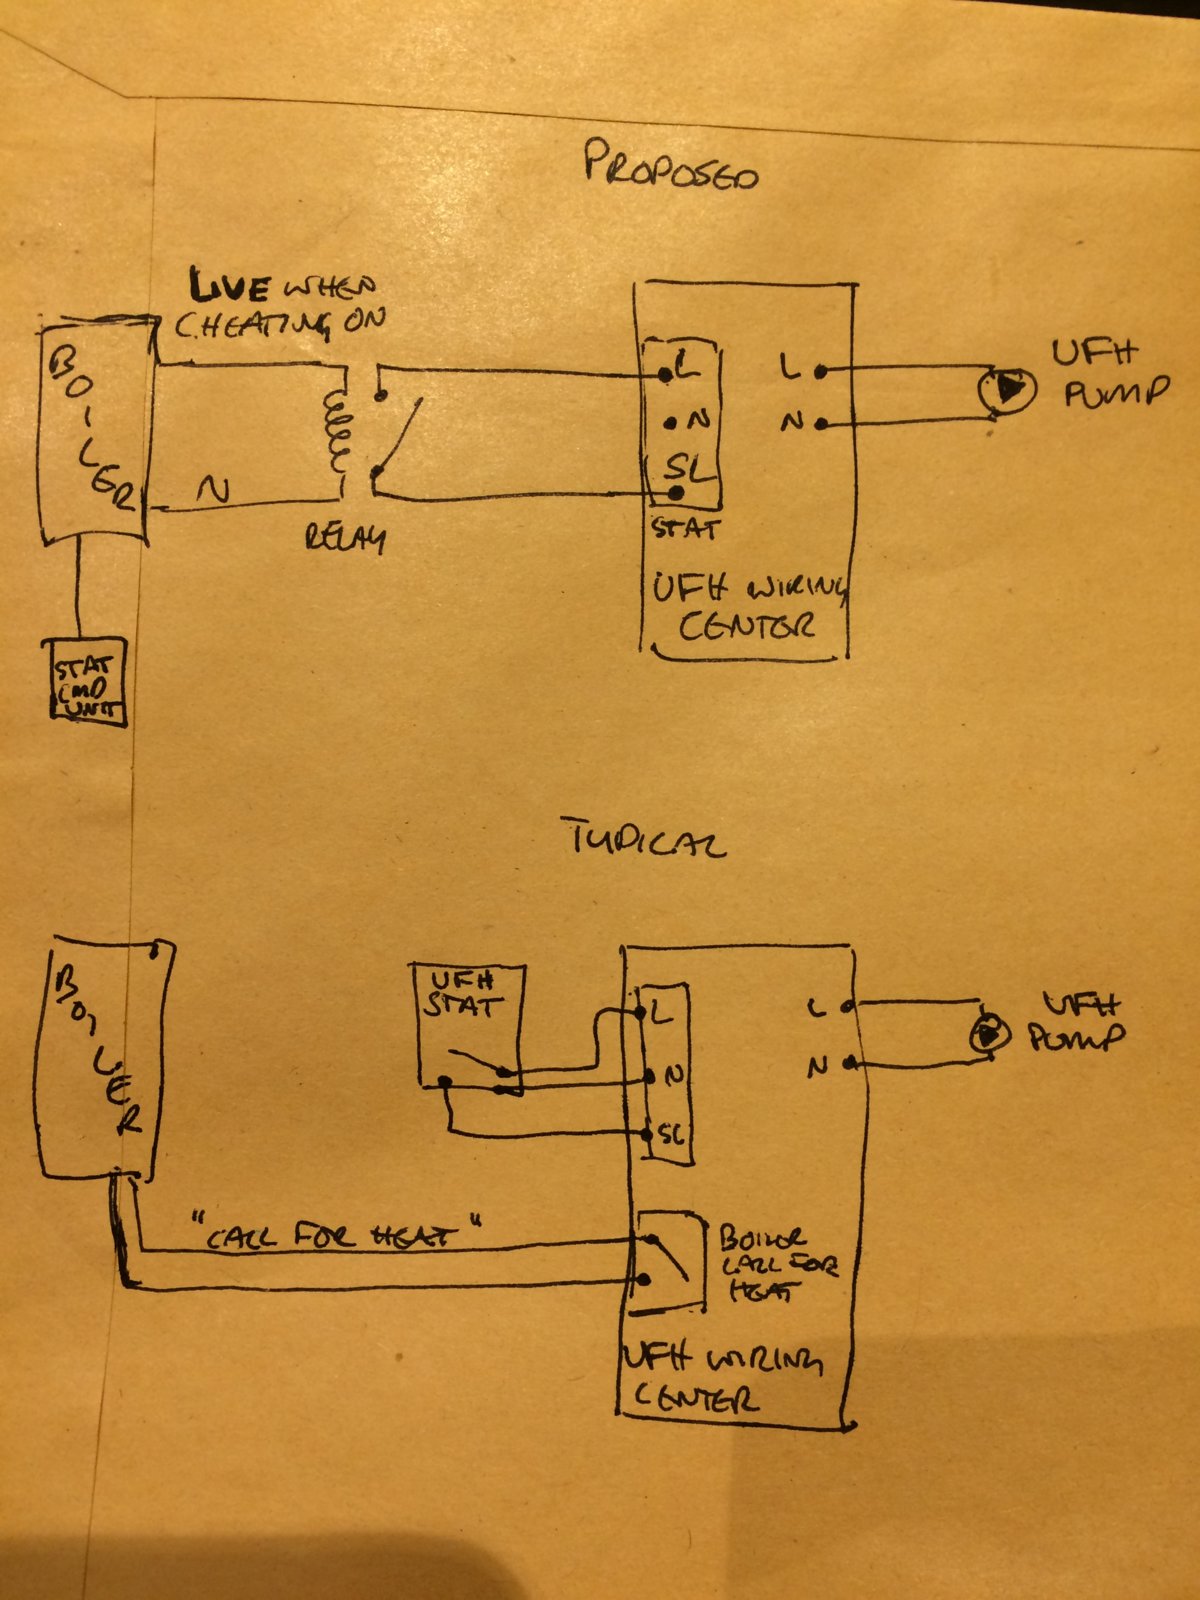 PROPOSED
LIVE WHEN
CHEATING ON
BOILER
N
RELAY
STAT
CMD
UNIT
L
N
SL
STAT
L
N
UFH WIRING
CENTER
UFH
PUMP
TYPICAL
BOILER
UFH
STAT
L
N
SL
L
N
UFH
PUMP
"CALL FOR HEAT"
BOILER
CALL FOR
HEAT
UFH WIRING
CENTER